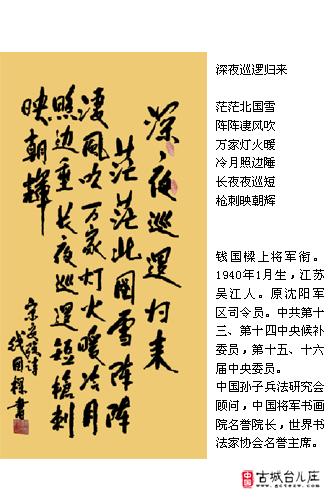 深夜巡逻归来
茫茫北国雪
阵阵凄风吹
万家灯火暖
冷月照边睡
长夜夜巡短
枪刺映朝辉
钱国樑上将军衔。
1940年1月生，江苏
吴江人。原沈阳军
区司令员。中共第十
三、第十四中央候补
委员，第十五、十六
届中央委员。
中国孙子兵法研究会
顾问，中国将军书画
院名誉院长，世界书
法家协会名誉主席。
深夜巡邏归来
茫茫北國雪陣陣
凄風吹万家灯火暖冷月
照边垂长夜巡邏短槍刺
映朝輝
钱国樑書
中国
古城台儿庄